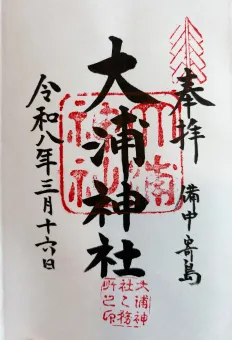 奉拝
備中寄島
大浦神社
令和八年三月十六日
大浦神
社之務
所之印